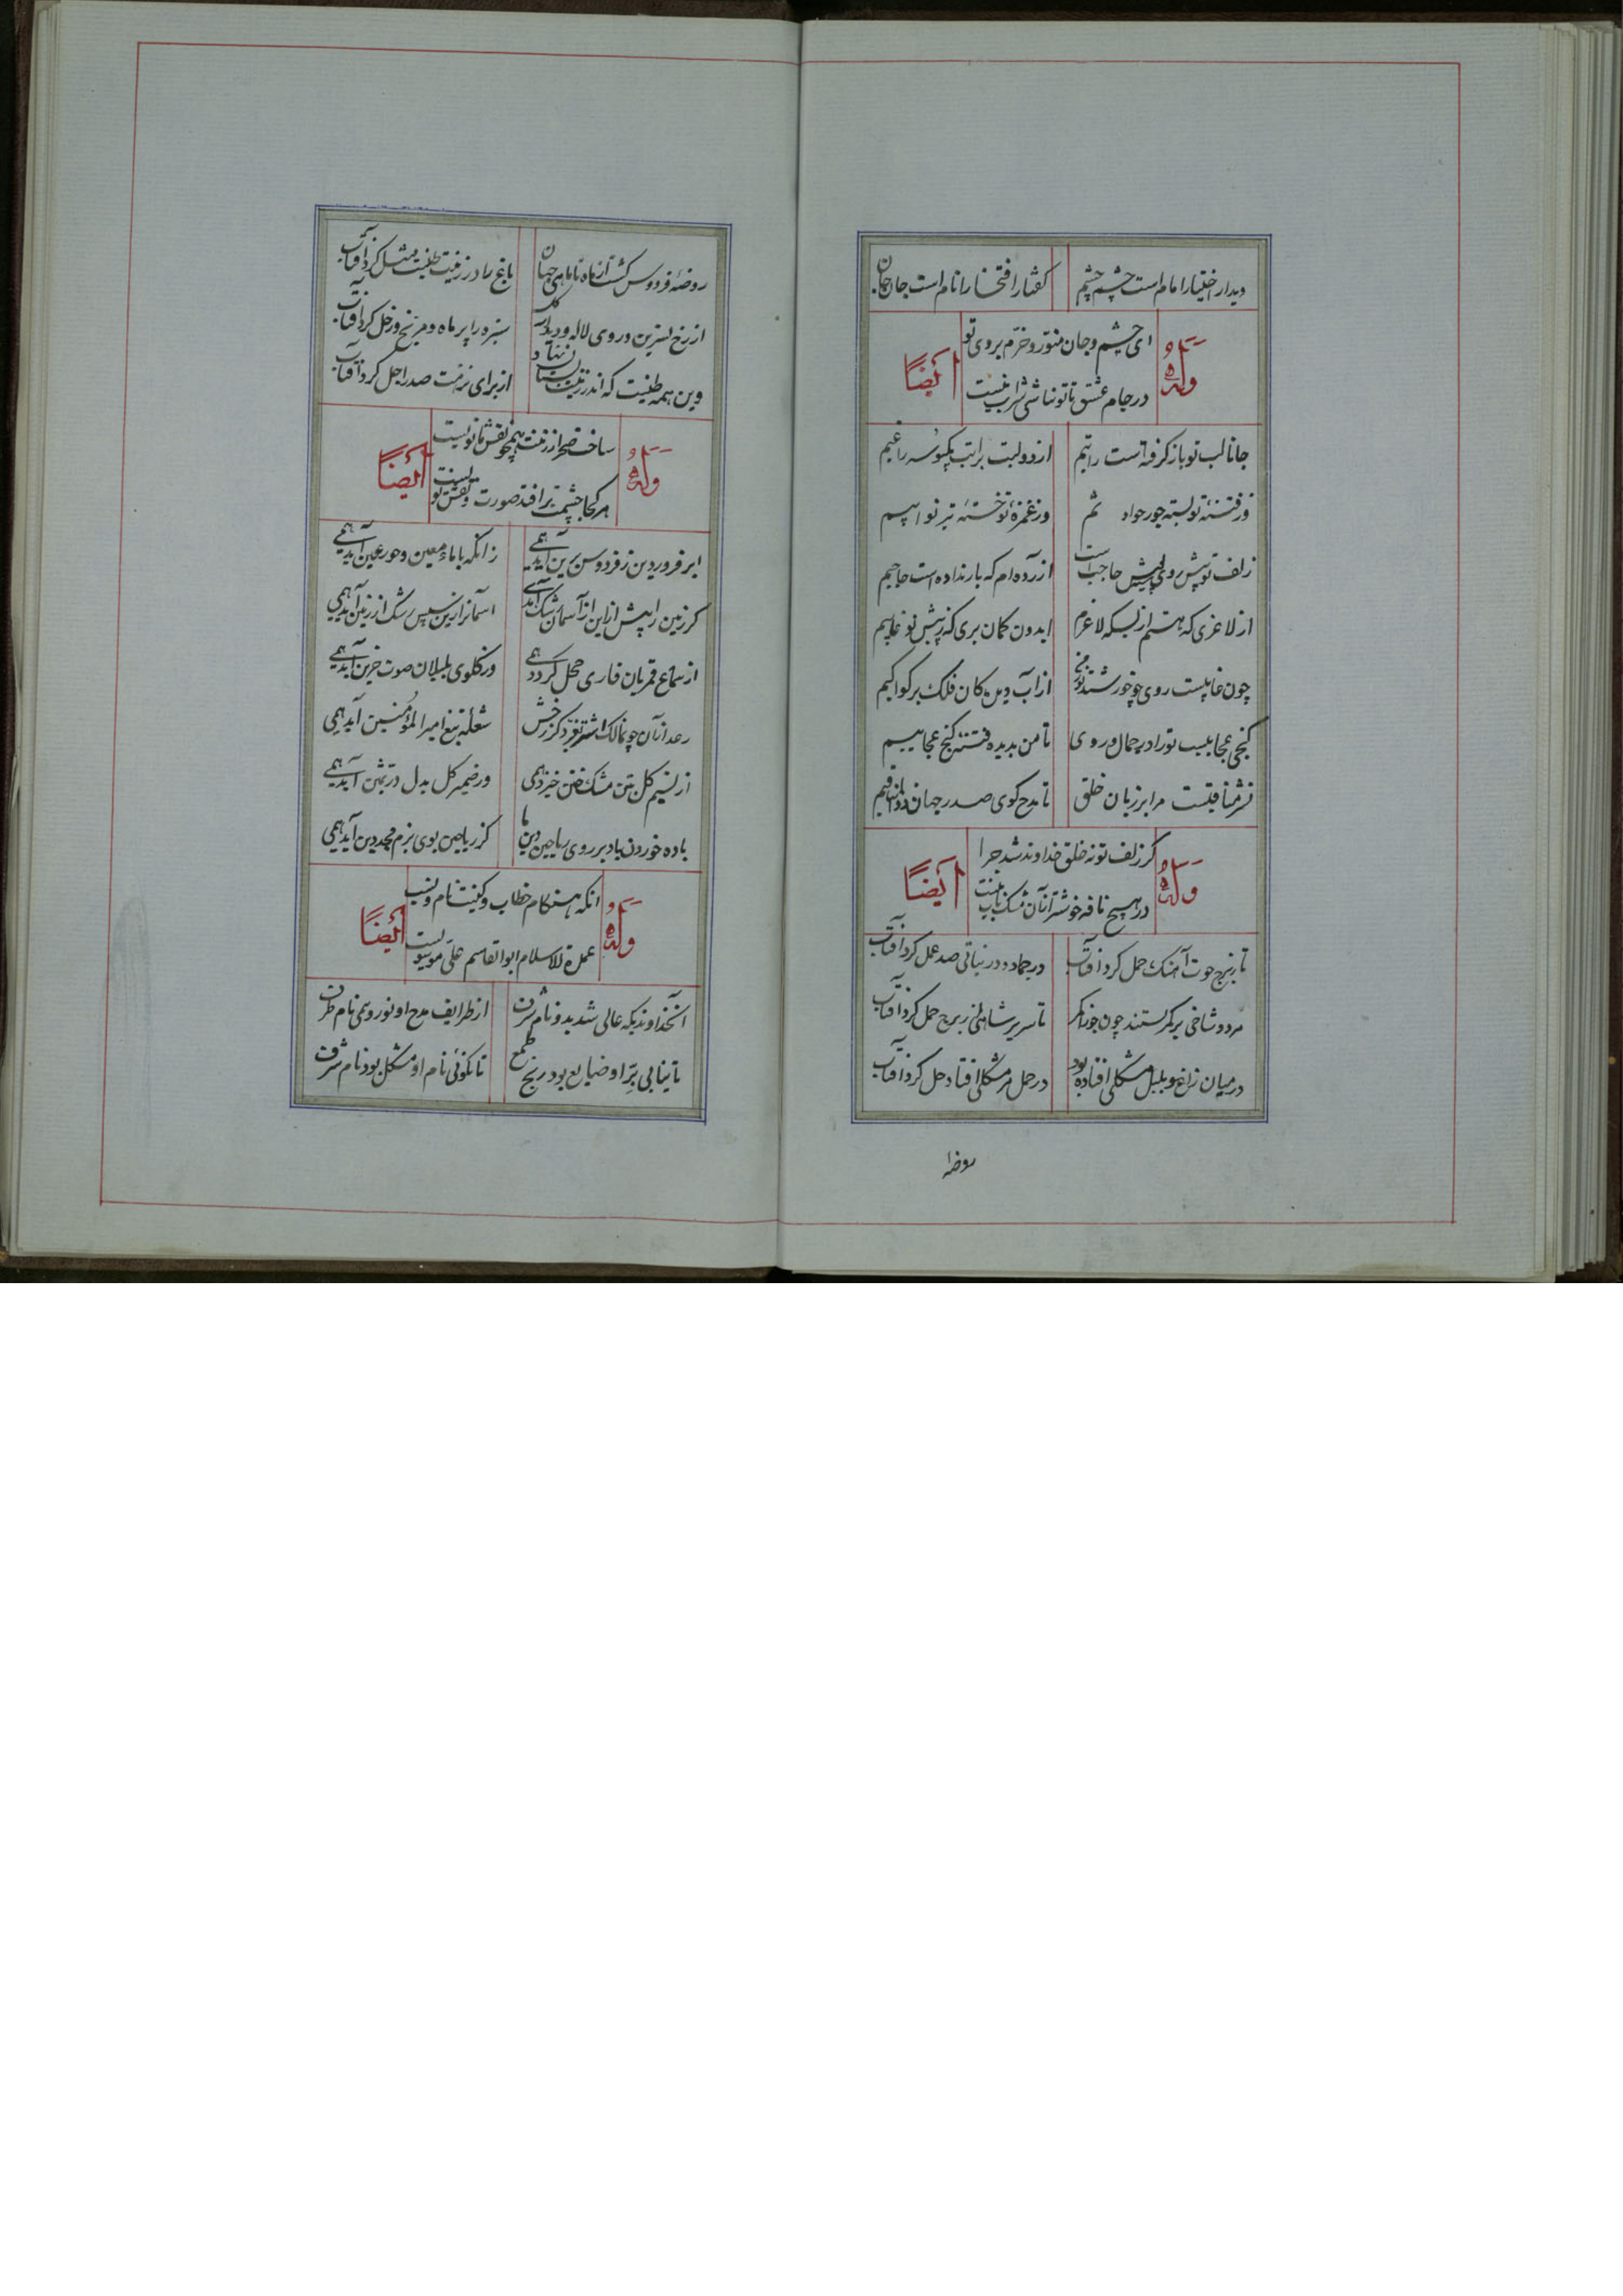 دیدار اختیار امام است چشم چشم
کفتار افتخار انام است جان جان
وله
ای چشم و جان منور و خرم بروی تو
ایضاً
در جام عشق تا تو نباشی شراب نیست
جانا لب تو باز کرفته است راتبم
از دو لبت براتب یکبوسه راغبم
وز فتنهٔ تو بسته جور حوادثم
وز غمزهٔ تو خسته تیر نوایبم
زلف تو پیش روی تو پیش حاجب است
ازرده ام که بار نداده است حاجبم
از لاغری که هستم از بسکه لاغرم
ایدون کمان بری که ز پیش تو غایبم
چون غایبست روی چو خورشید تو ز من
از آب دیده کان فلک پر کواکبم
کنجی عجایبست تو را در جمال و روی
تا من بدیده فتنه کنج عجایبم
نشر مناقبست مرا بر زبان خلق
تا مدح کوی صدر جهان ذو المناقبم
وله
کر زلف تو نه خلق خداوند شد چرا
ایضاً
در هیچ نافه خوشتر از آن مشک ناب نیست
تا ز برج حوت آهنک حمل کرد آفتاب
در جماد و در نباتی صد عمل کرد آفتاب
مرد و شاخی بر کمر بستند چون جوزا کمر
تا سریر شاهی از برج حمل کرد آفتاب
در میان زاغ و بلبل مشکلی افتاده بود
در حمل هر مشکلی افتاد حل کرد آفتاب
روضه
روضهٔ فردوس کشت از ماه تا ماهی جهان
باغ را در زینت طینت مثل کرد آفتاب
از رخ نسرین و روی لاله و دیدار کل
سبزه را پر ماه و مریخ و زحل کرد آفتاب
وین همه طینت که اندر زینت بستان نهاد
از برای نزهت صدر اجل کرد آفتاب
وله
ساخت صحرا ز زینت همچو نقش مانویست
ایضاً
هر کجا چشمت برافتد صورت و نقش نویست
ابر فروردین ز فردوس برین آید همی
زانکه با ماء معین و حور عین آید همی
کر زمین را پیش از این از آسمان رشک آمدی
آسمانرا زین سپس رشک از زمین آید همی
از سماع قمریان قاری خجل کردد همی
وز کلوی بلبلان صوت حزین آید همی
رعد از آن چو نالک اشتر نغرد کز رخش
شعله تیغ امیر المؤمنین آید همی
از نسیم کل بتن مشک ختن خیزد همی
وز ضمیر کل بدل در ثمین آید همی
باده خوردن باد بر روی ریاحین دین ما
کز ریاحین بوی بزم مجد دین آید همی
وله
انکه هنکام خطاب و کنیت نام و نسب
ایضاً
عمدة الاسلام ابوالقاسم علی موسویست
آنخداوندیکه عالی شد بدو نام شرف
از ظرایف مدح او نو روی همی نام ظرف
تا نیابی بر او ضایع بود رنج طمع
تا نکوئی نام او مشکل بود نام شرف